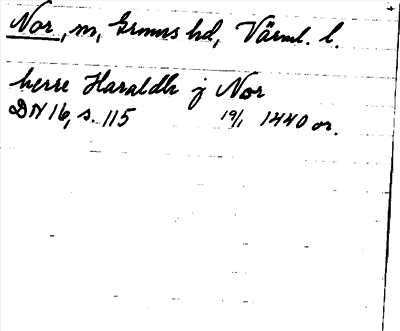 Nor, m, Grums hd, Värml. l.
herre Haraldh j Nor
DN 16, s. 115 19/1 1440 or.